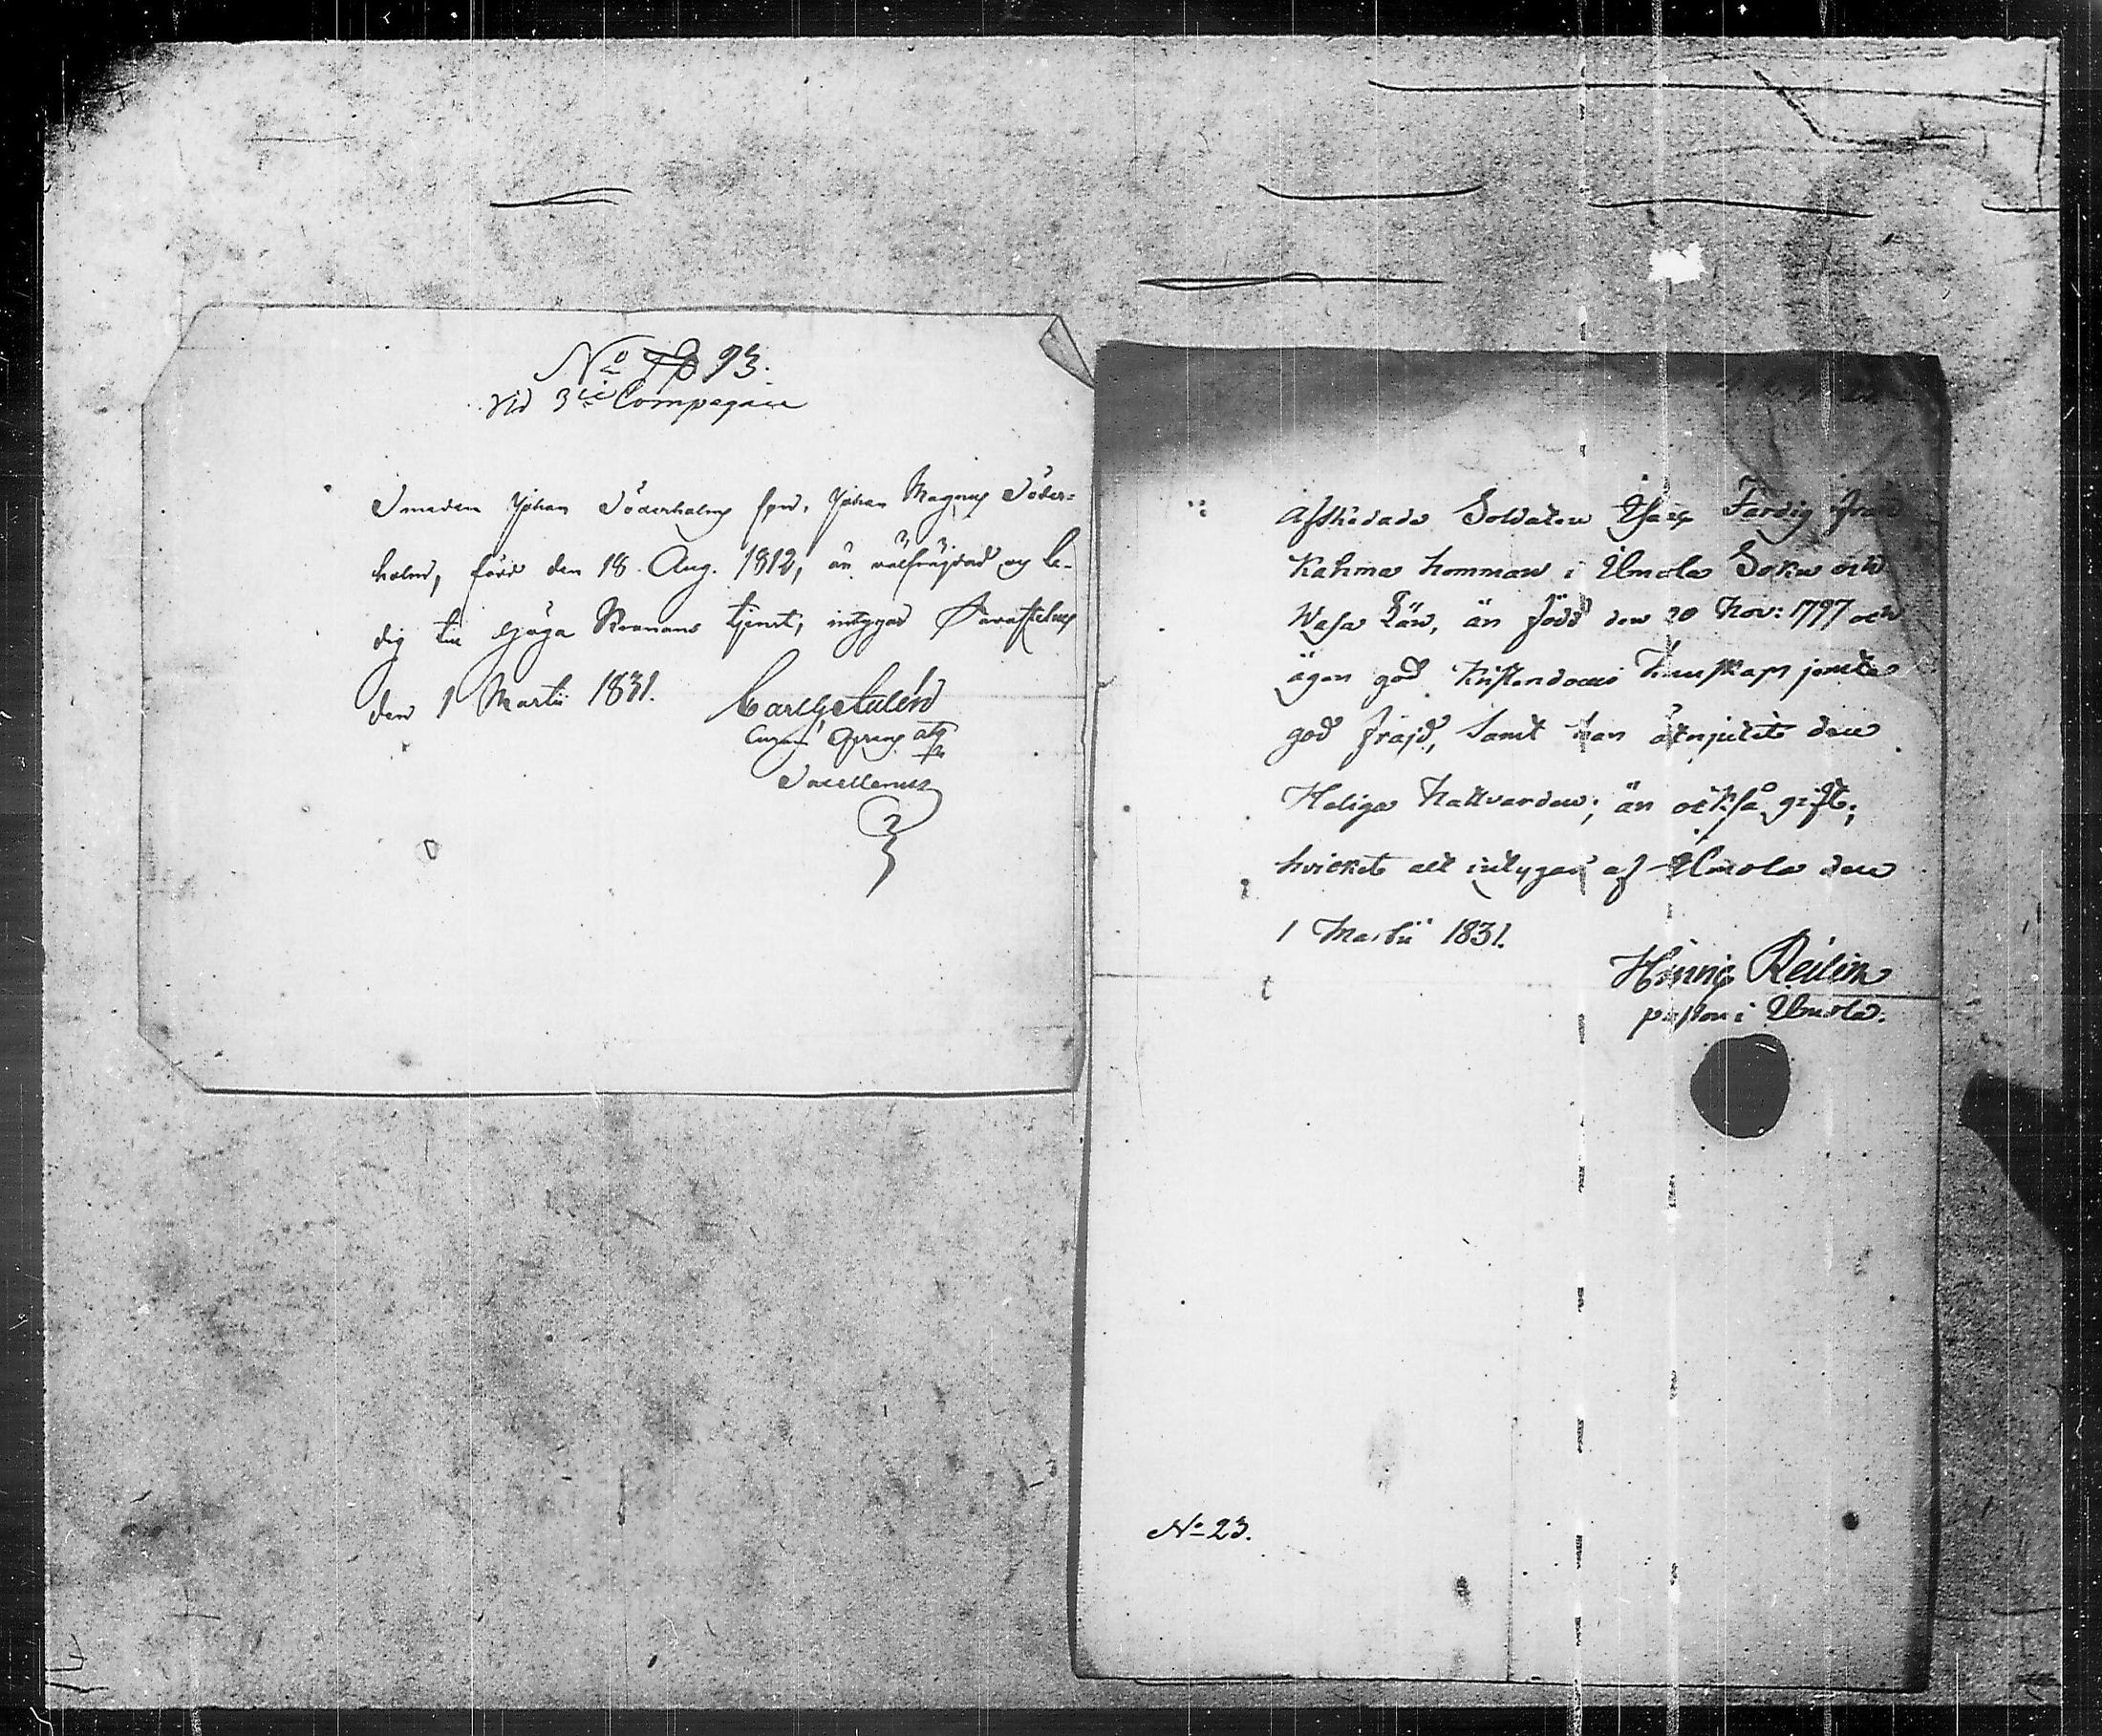 No 93.
vid 3ie Compagnie
Smeden Johan Söderholms son, Johan Magnus Söder=
holm, född den 18 Aug. 1812, är välfrägdad og le-
dig till Höga Kronans tjenst, intygas Tavastehus
den 1 Martii 1831.
Sacellanus
Afskedade Soldaten Isac Färdig från
Kahma hemman i Ilmola Sokn och
Wasa Län, är född den 20 Nov: 1797 och
äger god Kristendoms Kunskap jemte
god fräjd, samt han åtnjutit den
Heliga Nattvarden; är också gift;
hvilket alt intygas af Ilmola den
1 Martii 1831.
pastor i Ilmola.
No 23.